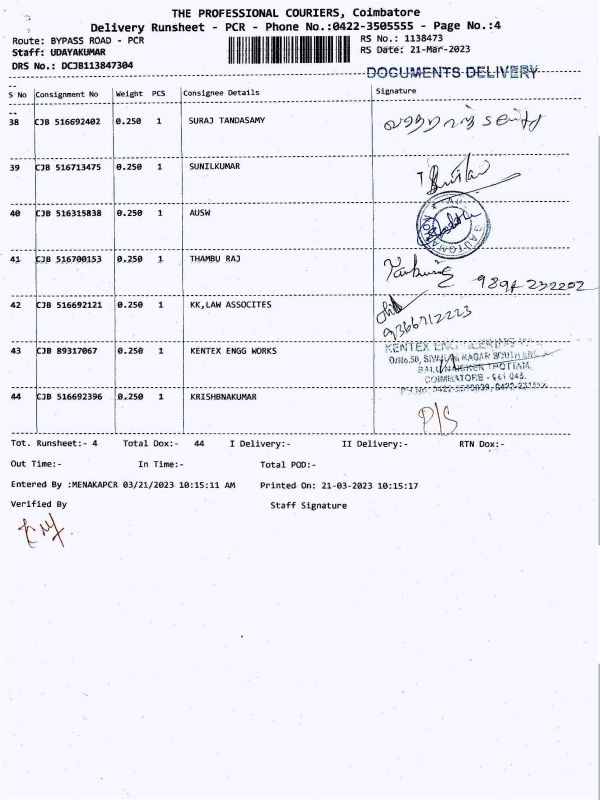 THE PROFESSIONAL COURIERS, Coimbatore
Delivery Runsheet - PCR - Phone No.:0422-3505555 - Page No.:4
Route: BYPASS ROAD - PCR
RS No.: 1138473
Staff: UDAYAKUMAR
RS Date: 21-Mar-2023
DRS No.: DCJB113847304
DOCUMENTS DELIVERY
S No Consignment No Weight PCS Consignee Details Signature
38 CJB 516692402 0.250 1 SURAJ TANDASAMY
39 CJB 516713475 0.250 1 SUNILKUMAR
40 CJB 516315838 0.250 1 AUSW
41 CJB 516700153 0.250 1 THAMBU RAJ
42 CJB 516692121 0.250 1 KK,LAW ASSOCITES
9366712223
43 CJB 89317067 0.250 1 KENTEX ENGG WORKS
KENTEX ENGINEERING
COIMBATORE - 641 043.
44 CJB 516692396 0.250 1 KRISHBNAKUMAR
P/S
Tot. Runsheet:- 4 Total Dox:- 44 I Delivery:- II Delivery:- RTN Dox:-
Out Time:- In Time:- Total POD:-
Entered By :MENAKAPCR 03/21/2023 10:15:11 AM Printed On: 21-03-2023 10:15:17
Verified By Staff Signature